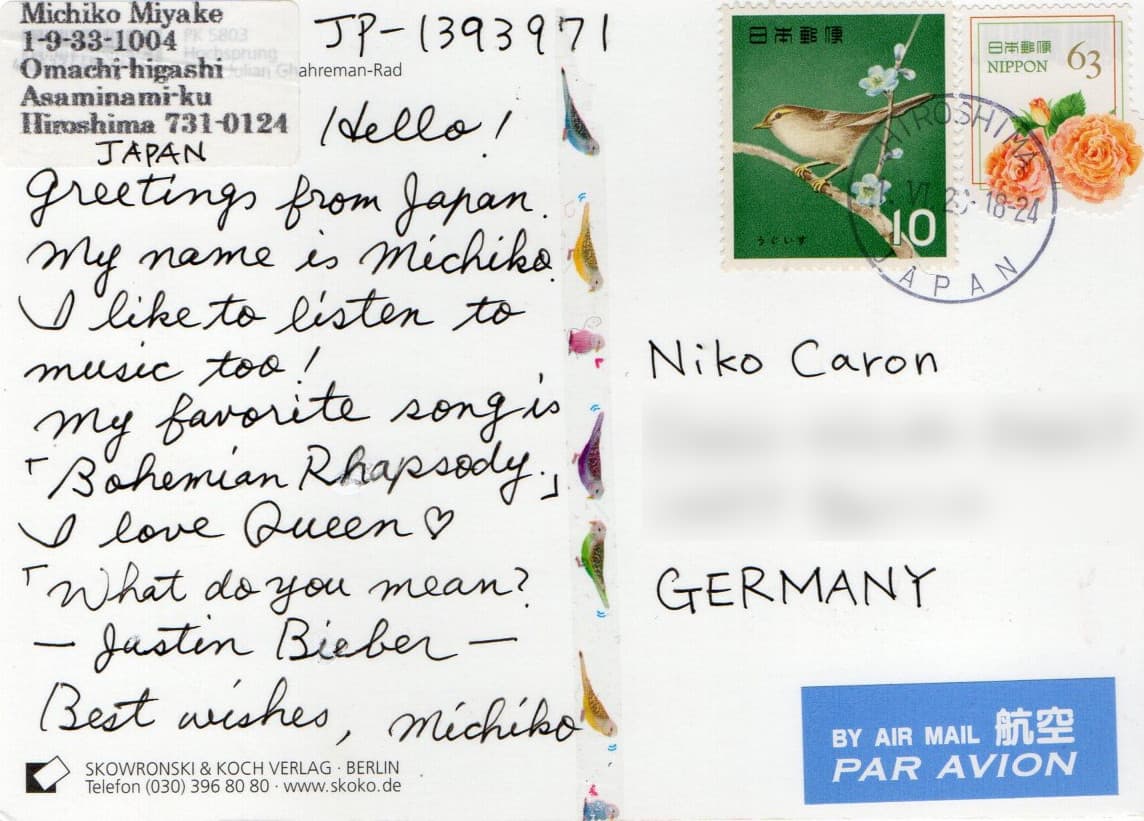 Michiko Miyake
1-9-33-1004
Omachi-higashi
Asaminami-ku
Hiroshima 731-0124
JAPAN
PK 5803
Hochsprung
ahreman-Rad
JP-1393971
Hello!
Greetings from Japan.
My name is Michiko.
I like to listen to
music too!
My favorite song is
「Bohemian Rhapsody.」
I love Queen♡
「What do you mean?
— Justin Bieber —
Best wishes, Michiko
SKOWRONSKI & KOCH VERLAG · BERLIN
Telefon (030) 396 80 80 · www.skoko.de
日本郵便
うぐいす
10
日本郵便
NIPPON
63
HIROSHIMA
18-24
JAPAN
Niko Caron
GERMANY
BY AIR MAIL 航空
PAR AVION